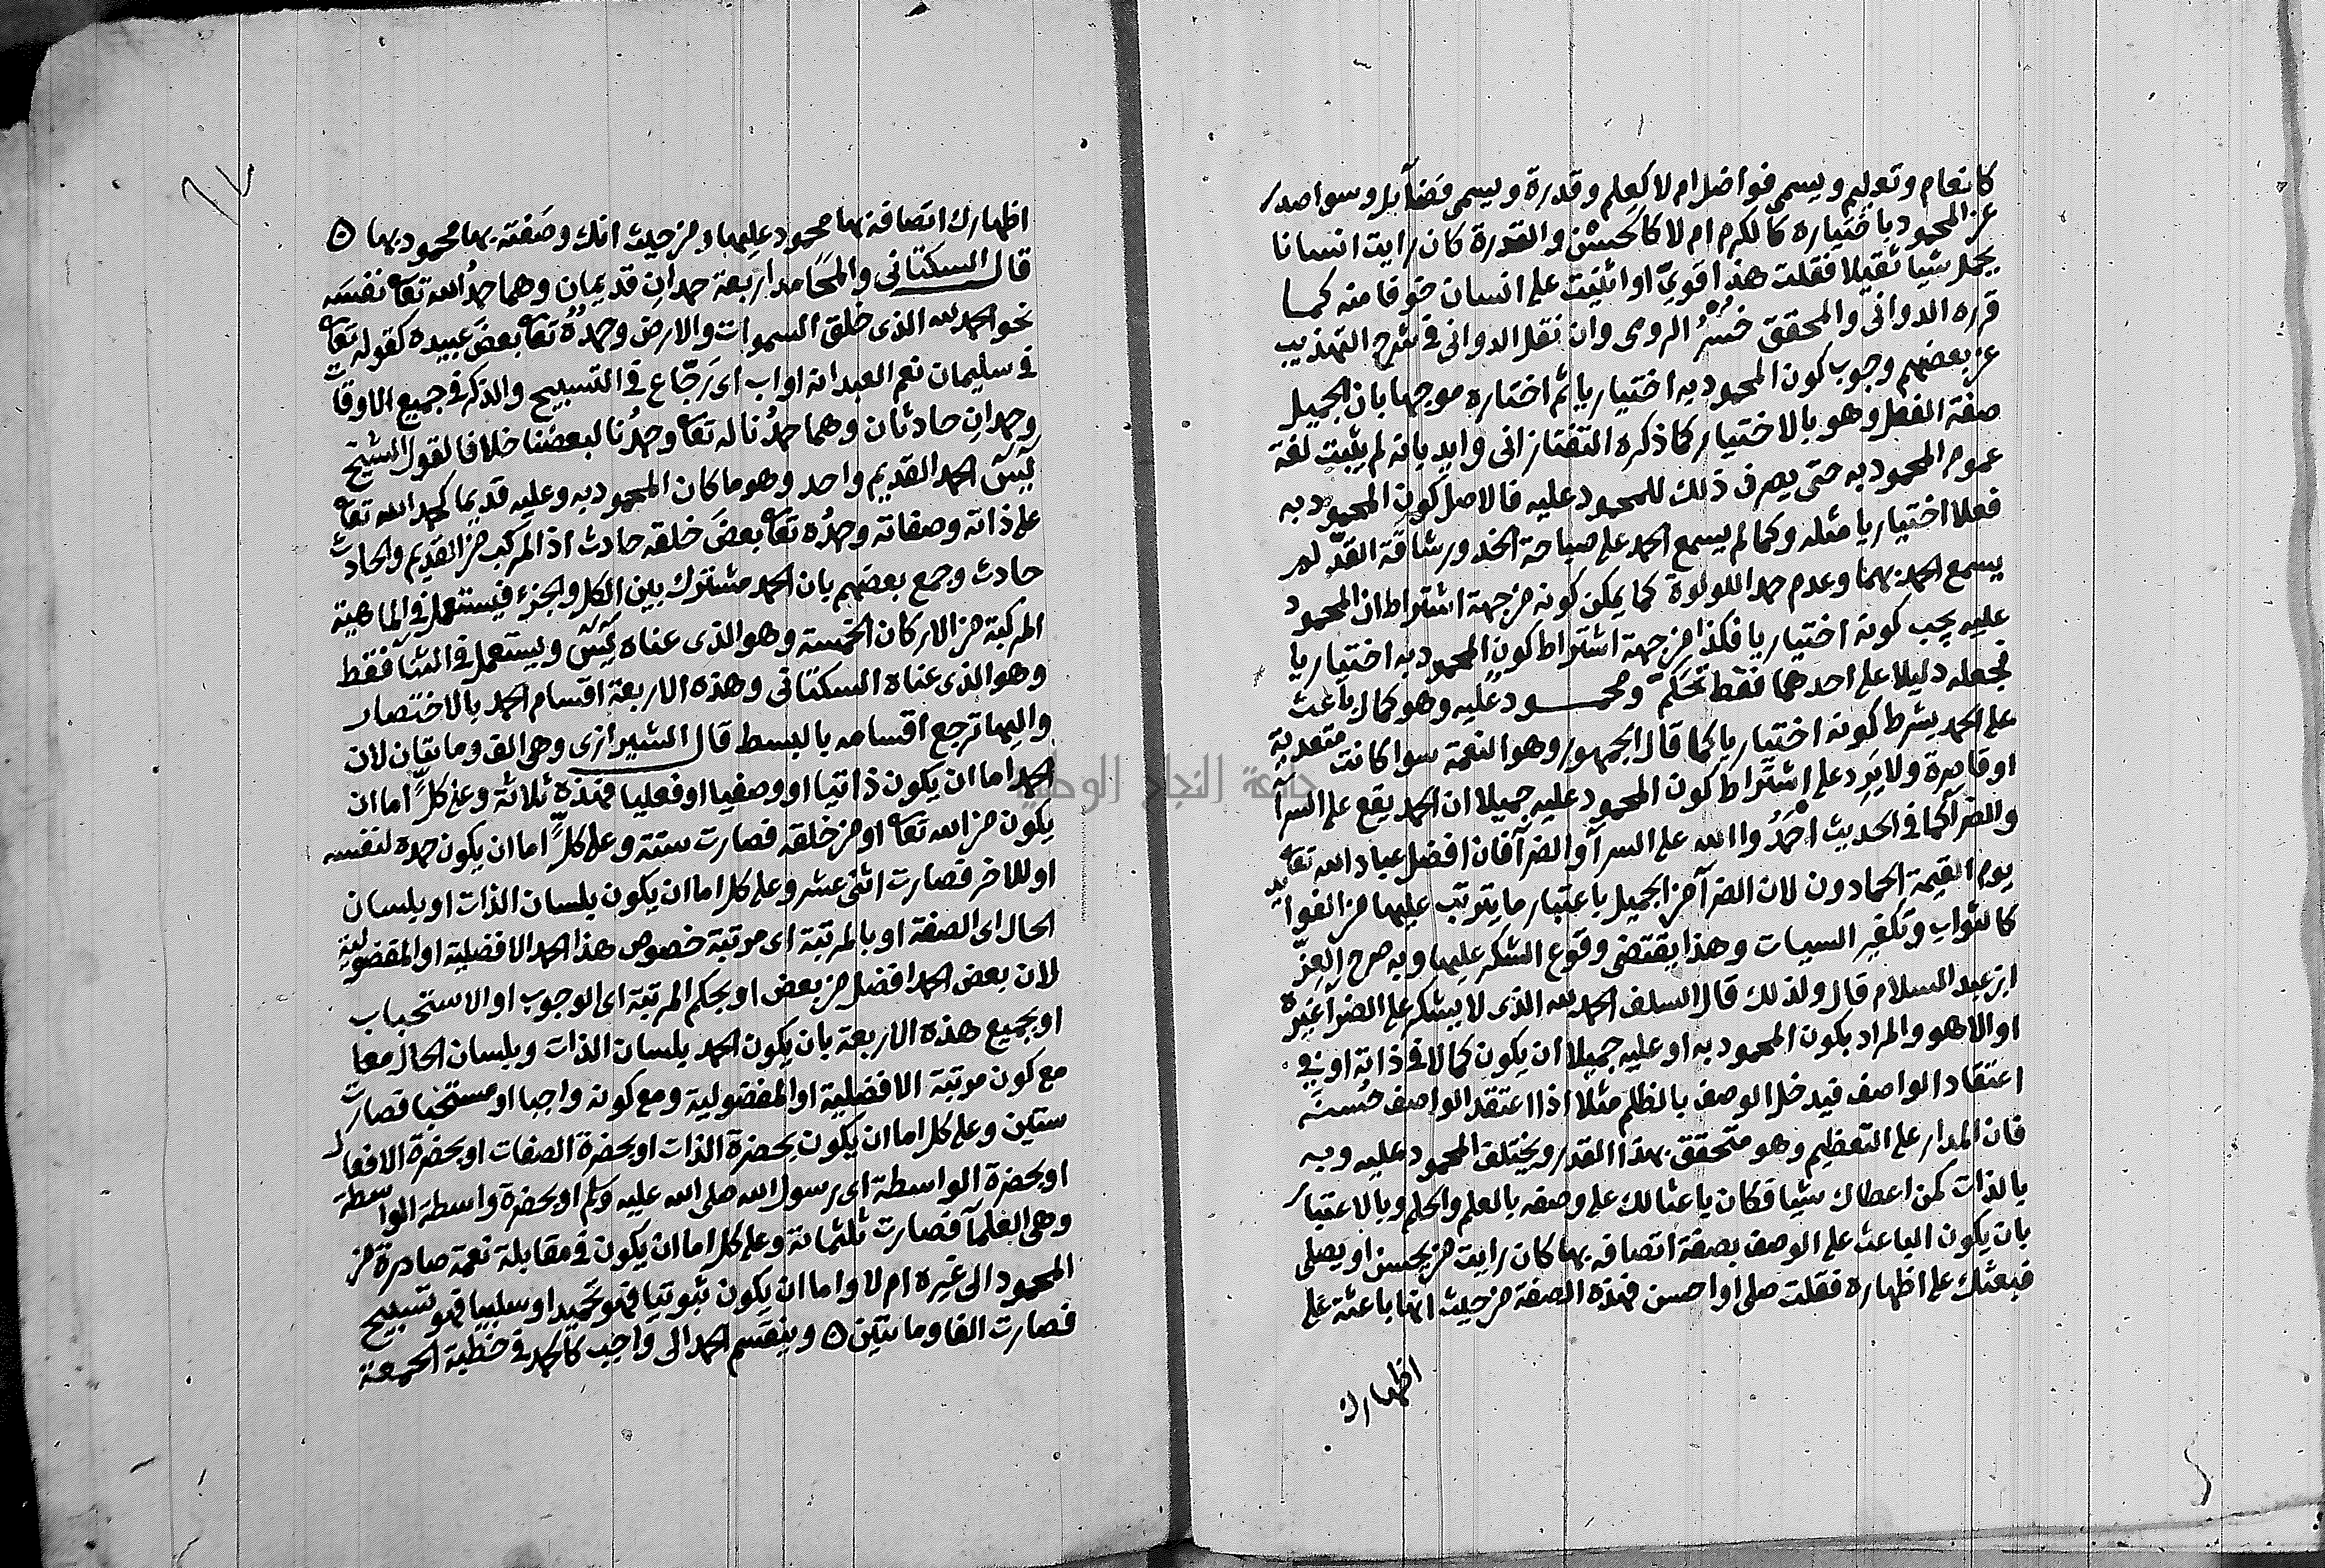 كانعام وتعليم ويسمى فواضل ام لا كعلم وقدرة ويسمى فضآيل وسوا صدر
عن المحمود باختياره كالكرم ام لا كالحسن والقدرة كان رايت انسانا
يحمل شيا ثقيلا فقلت هذا قوي او اثنيت على انسان خوفا منه كما
قرره الدوانى والمحقق خسرو الرومى وان نقل الدوانى فى شرح التهذيب
عن بعضهم وجوب كون المحمود به اختياريا ثم اختاره موجها بان الجميل
صفة الفعل وهو بالاختيار كما ذكره التفتازانى وايد بانه لم يثبت لغة
عموم المحمود به حتى يصرف ذلك للمحمود عليه فالاصل كون المحمود به
فعلا اختياريا مثله وكما لم يسمع الحمد على صباحة الخد ورشاقة القد لم
يسمع الحمد بهما وعدم حمد اللولوة كما يمكن كونه من جهة اشتراط ان المحمود
عليه يجب كونه اختياريا فكذا من جهة اشتراط كون المحمود به اختياريا
فجعله دليلا على احدهما فقط تحكم ومحمود عليه وهو كمال باعث
على الحمد بشرط كونه اختياريا كما قال الجمهور وهو النعمة سوا كانت متعدية
او قاصرة ولا يرد على اشتراط كون المحمود عليه جميلا ان الحمد يقع على السرآ
والضرآ كما فى الحديث احمدوا الله على السرآ والضرآ فان افضل عباد الله تعالى
يوم القيمة الحمادون لان الضرآ من الجميل باعتبار ما يترتب عليها من الفوايد
كالثواب وتكفير السيات وهذا يقتضى وقوع الشكر عليها وبه صرح العز
ابن عبد السلام قال ولذلك قال السلف الحمد لله الذى لا يشكر على الضرآ غيره
او الا هو والمراد بكون المحمود به او عليه جميلا ان يكون كمالا فى ذاته او فى
اعتقاد الواصف فيدخل الوصف بالظلم مثلا اذا اعتقد الواصف حسنه
فان المدار على التعظيم وهو متحقق بهذا القدر ويختلف المحمود عليه وبه
بالذات كمن اعطاك شيا فكان باعثا لك على وصفه بالعلم والحلم وبالاعتبار
بان يكون الباعث على الوصف بصفة اتصافه بها كان رايت من يحسن او يصلى
فبعثك على اظهاره فقلت صلى او احسن فهذه الصفة من حيث انها باعثة على
اظهارك
اظهارك اتصافه بها محمود عليها ومن حيث انك وصفته بها محمود بها ٥
قال السكتانى والمحامد اربعة حمدان قديمان وهما حمد الله تعالى نفسه
نحو الحمد لله الذى خلق السموات والارض وحمده تعالى بعض عبيده كقوله تعالى
فى سليمان نعم العبد انه اواب اى رجاع فى التسبيح والذكر فى جميع الاوقات
وحمدان حادثان وهما حمدنا له تعالى وحمدنا لبعضنا خلافا لقول الشيخ
يس الحمد القديم واحد وهو ما كان المحمود به وعليه قديما كحمد الله تعالى
على ذاته وصفاته وحمده تعالى بعض خلقه حادث اذ المركب من القديم والحادث
حادث وجمع بعضهم بان الحمد مشترك بين الكل والجزء فيستعمل فى الماهية
المركبة من الاركان الخمسة وهو الذى عناه يس ويستعمل فى الثنآ فقط
وهو الذى عناه السكتانى وهذه الاربعة اقسام الحمد بالاختصار
واليها ترجع اقسامه بالبسط قال الشيرازى وهى الف ومايتان لان
الحمد اما ان يكون ذاتيا او وصفيا او فعليا فهذه ثلاثة وعلى كل اما ان
يكون من الله تعالى او من خلقه فصارت ستة وعلى كل اما ان يكون حمده لنفسه
او للاخر فصارت اثنى عشر وعلى كل اما ان يكون بلسان الذات او بلسان
الحال اى الصفة او بالمرتبة اى مرتبة خصوص هذا الحمد الافضلية او المفضولية
لان بعض الحمد افضل من بعض او بحكم المرتبة اى الوجوب او الاستحباب
او بجميع هذه الاربعة بان يكون الحمد بلسان الذات وبلسان الحال معا
مع كون مرتبة الافضلية او المفضولية ومع كونه واجبا او مستحبا فصارت
ستين وعلى كل اما ان يكون بحضرة الذات او بحضرة الصفات او بحضرة الافعال
او بحضرة الواسطة اى رسول الله صلى الله عليه وسلم او بحضرة واسطة الواسطة
وهى العلمآ فصارت ثلثمائة وعلى كل اما ان يكون فى مقابلة نعمة صادرة من
المحمود الى غيره ام لا واما ان يكون ثبوتيا فهو تحميد او سلبيا فهو تسبيح
فصارت الفا ومائتين ٥ وينقسم الحمد الى واجب كالحمد فى خطبة الجمعة
جامعة النجاح الوطنية